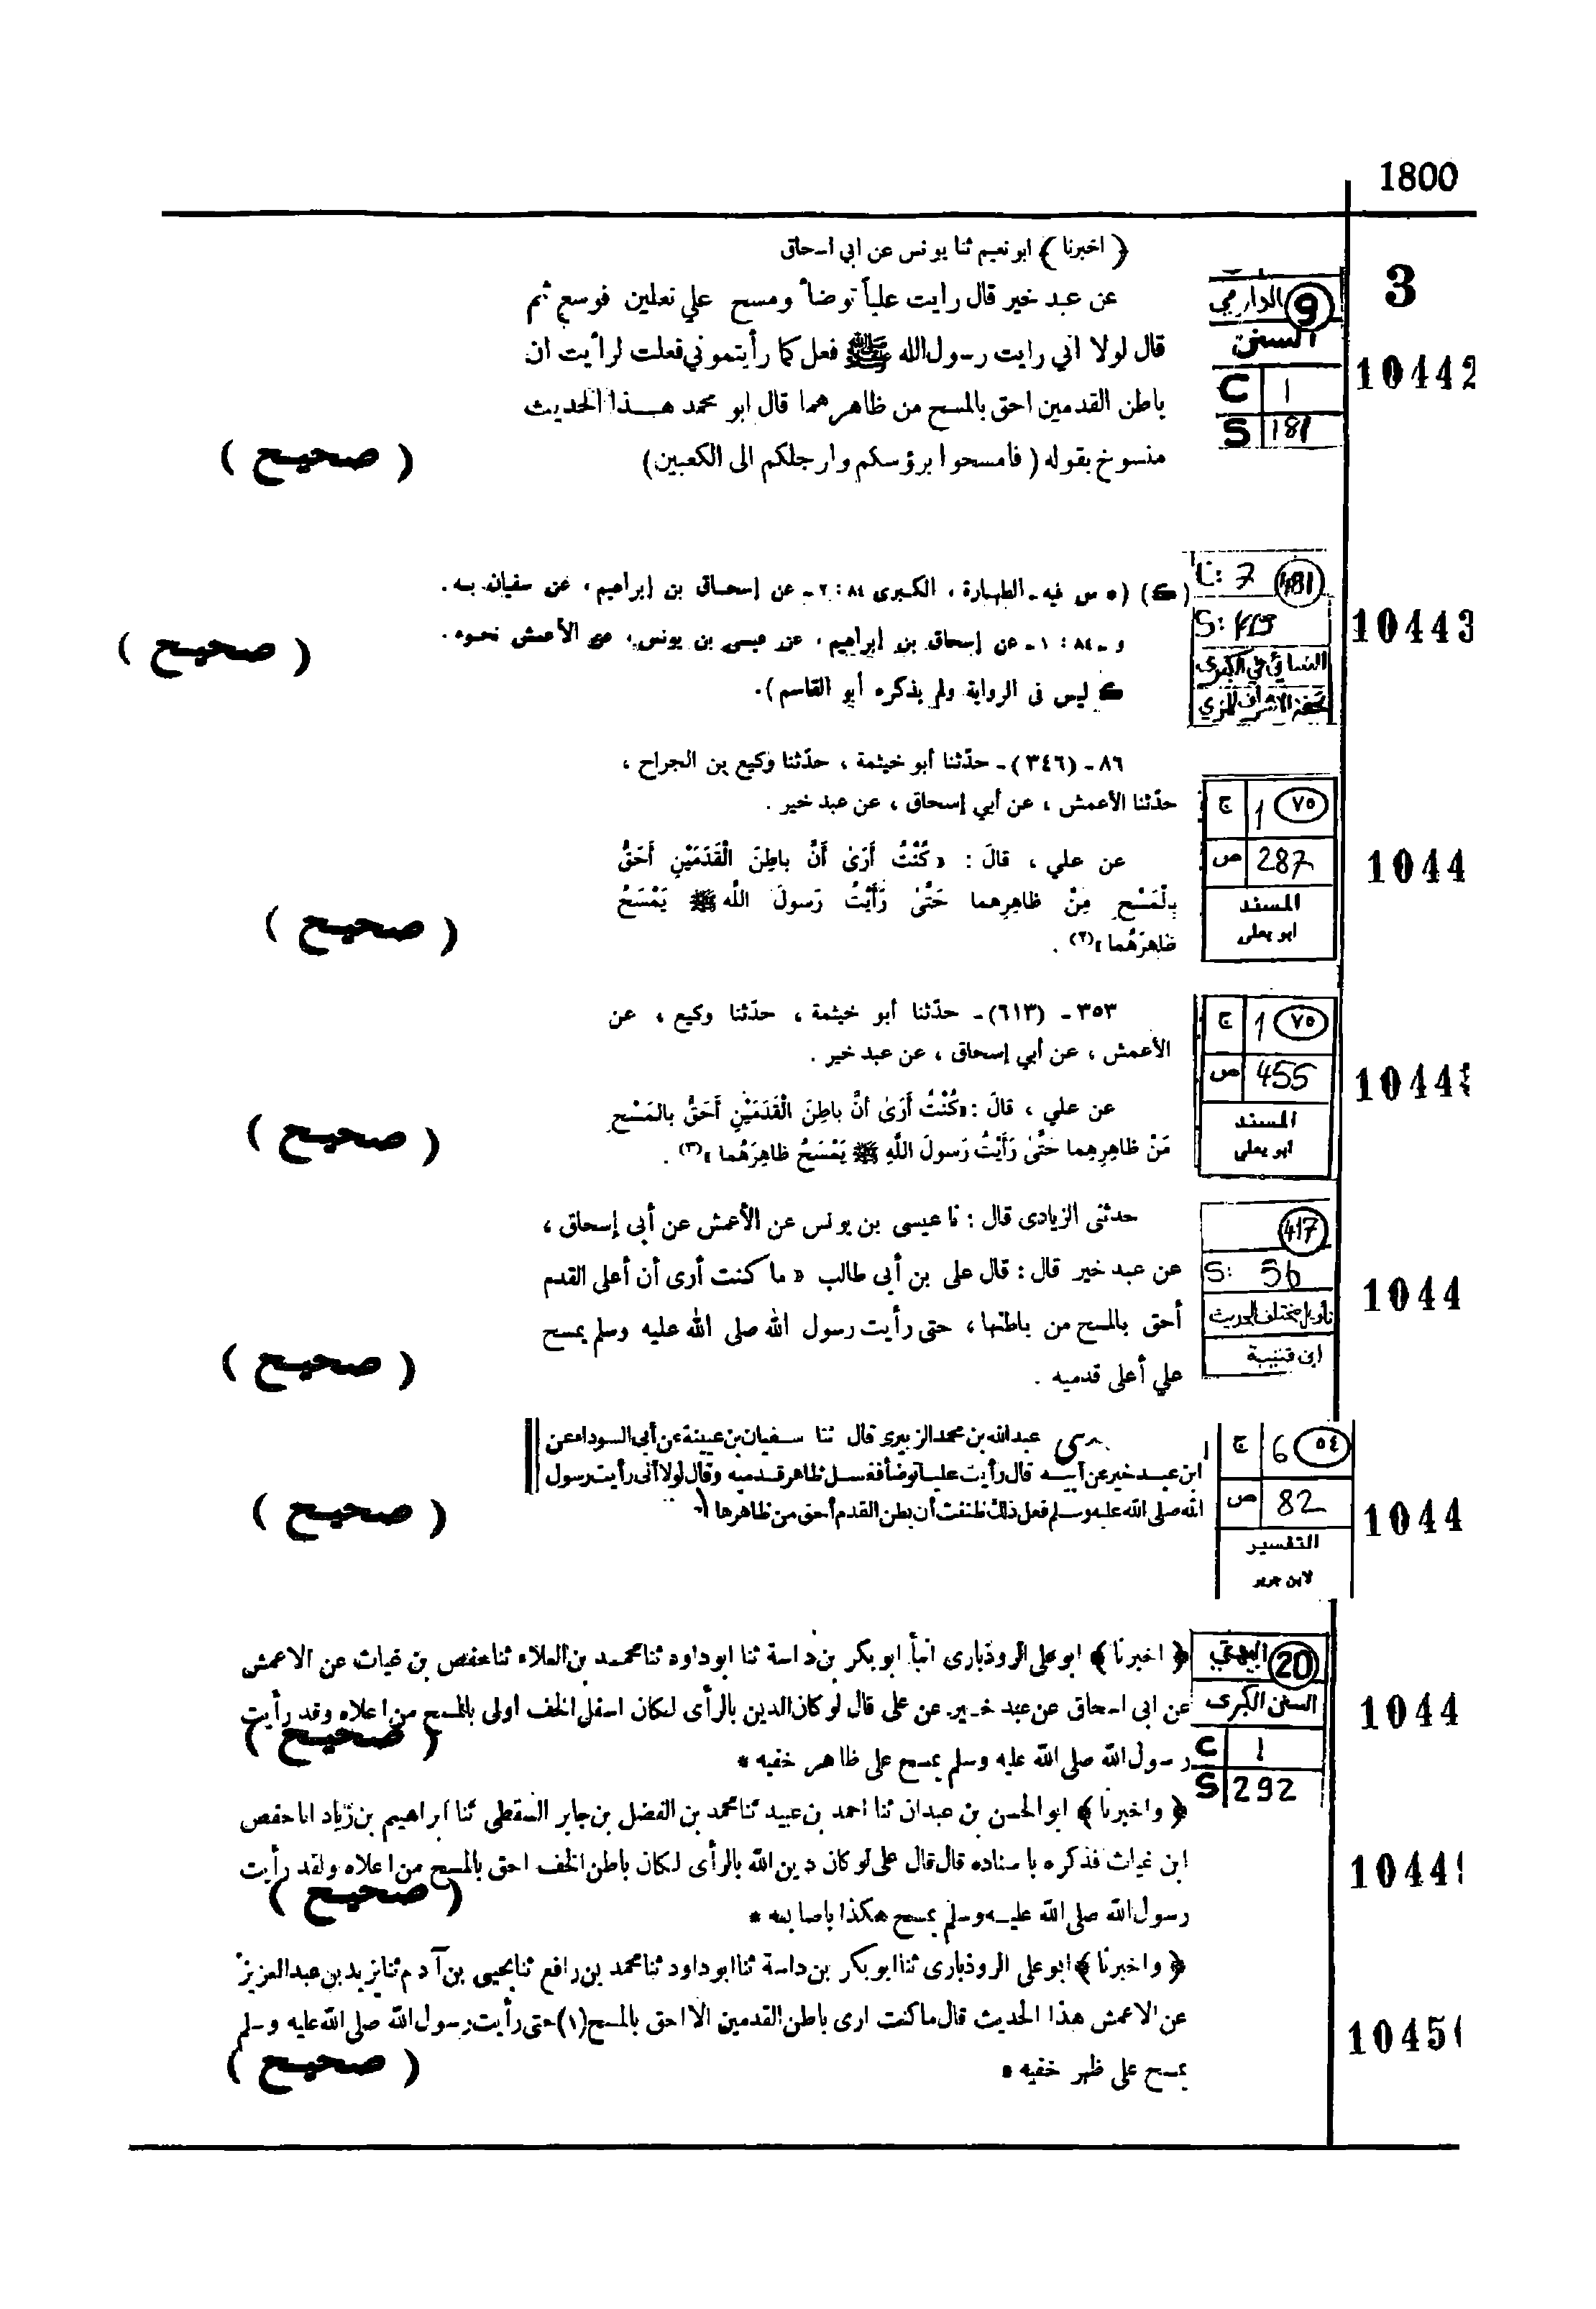 1800
3
﴿ اخبرنا ﴾ ابو نعيم ثنا يونس عن ابي اسحاق
عن عبد خير قال رايت علياً توضأ ومسح علي نعلين فوسع ثم
قال لولا اني رايت رسول الله ﷺ فعل كما رأيتموني فعلت لرأيت ان
باطن القدمين احق بالمسح من ظاهرهما قال ابو محمد هذا الحديث
منسوخ بقوله ( فامسحوا برؤسكم وارجلكم الى الكعبين)
( صحيح )
9 الدارمي
السنن
C 1
S 181
10442
(ك) (* س فيه ـ الطهارة ، الكبرى ٨٤ : ٢ ـ عن إسحاق بن إبراهيم ، عن سفيان به .
و ـ ٨٤ : ١ ـ عن إسحاق بن إبراهيم ، عن عيسى بن يونس ، عن الأعمش نحوه .
ك ليس في الرواية ولم يذكره أبو القاسم ).
( صحيح )
7 481
S: 419
النسائي في الكبرى
تحفة الاشراف للمزي
10443
٨٦ ـ (٣٤٦) ـ حدّثنا أبو خيثمة ، حدّثنا وكيع بن الجراح ،
حدّثنا الأعمش ، عن أبي إسحاق ، عن عبد خير .
عن علي ، قالَ : « كُنْتُ أَرَىٰ أَنَّ باطِنَ الْقَدَمَيْنِ أَحَقُّ
بِالْمَسْحِ مِنْ ظاهِرِهِما حَتَّىٰ رَأَيْتُ رَسولَ اللَّه ﷺ يَمْسَحُ
ظاهِرَهُما »(٢) .
( صحيح )
ج 1 ٧٥
ص 287
المسند
ابو يعلى
1044
٣٥٣ ـ (٦١٣) ـ حدّثنا أبو خيثمة ، حدّثنا وكيع ، عن
الأعمش ، عن أبي إسحاق ، عن عبد خير .
عن علي ، قالَ : «كُنْتُ أَرَىٰ أنَّ باطِنَ الْقَدَمَيْنِ أَحَقُّ بالمَسْحِ
مَنْ ظاهِرِهِما حَتَّىٰ رَأَيْتُ رَسولَ اللَّهِ ﷺ يَمْسَحُ ظاهِرَهُما »(٣) .
( صحيح )
ج 1 ٧٥
ص 455
المسند
ابو يعلى
1044
حدثني الزيادى قال : نا عيسى بن يونس عن الأعمش عن أبى إسحاق ،
عن عبد خير قال : قال على بن أبى طالب « ما كنت أرى أن أعلى القدم
أحق بالمسح من باطنها ، حتى رأيت رسول الله صلى الله عليه وسلم يمسح
علي أعلى قدميه .
( صحيح )
417
S: 56
تأويل مختلف الحديث
ابن قتيبة
1044
عبد الله بن محمد الزبيرى قال ثنا سفيان بن عيينة عن أبى السوداء عن
ابن عبد خير عن أبيه قال رأيت عليا توضأ فغسل ظاهر قدميه وقال لولا أنى رأيت رسول
الله صلى الله عليه وسلم فعل ذلك ظننت أن بطن القدم أحق من ظاهرها
( صحيح )
ج 6 ٥٤
ص 82
التفسير
لابن جرير
1044
﴿ اخبرنا ﴾ ابو على الروذبارى انبأ ابو بكر بن داسة ثنا ابو داود ثنا محمد بن العلاء ثنا حفص بن غياث عن الاعمش
عن ابى اسحاق عن عبد خير عن على قال لو كان الدين بالرأى لكان اسفل الخف اولى بالمسح من اعلاه وقد رأيت
رسول الله صلى الله عليه وسلم يمسح على ظاهر خفيه *
( صحيح )
20 البيهقي
السنن الكبرى
C 1
S 292
1044
﴿ واخبرنا ﴾ ابو الحسن بن عبدان ثنا احمد بن عبيد ثنا محمد بن الفضل بن جابر السقطى ثنا ابراهيم بن زياد انا حفص
ابن غياث فذكره باسناده قال قال على لو كان دين الله بالرأى لكان باطن الخف احق بالمسح من اعلاه ولقد رأيت
رسول الله صلى الله عليه وسلم يمسح هكذا باصابعه *
( صحيح )
10449
﴿ واخبرنا ﴾ ابو على الروذبارى ثنا ابو بكر بن داسة ثنا ابو داود ثنا محمد بن رافع ثنا يحيى بن آدم ثنا يزيد بن عبد العزيز
عن الاعمش هذا الحديث قال ما كنت ارى باطن القدمين الا احق بالمسح (١) حتى رأيت رسول الله صلى الله عليه وسلم
يمسح على ظهر خفيه *
( صحيح )
1045